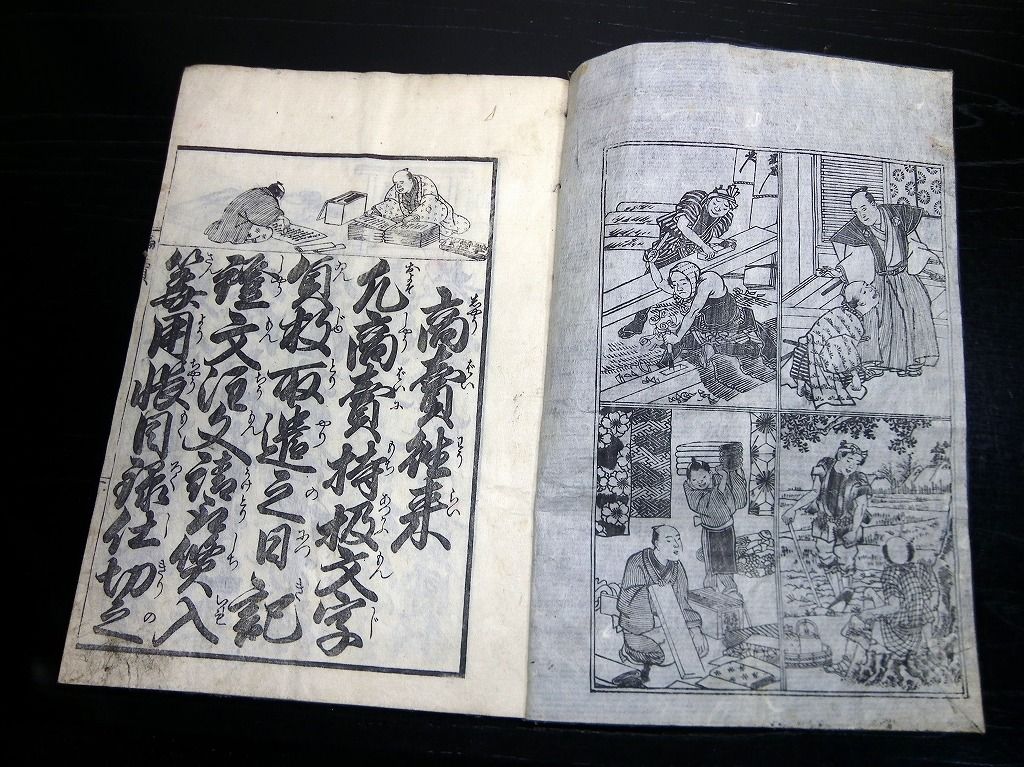 商賣往来
凡商賣持扱文字
員数取遣之日記
證文注文請取質入
算用帳目録仕切之